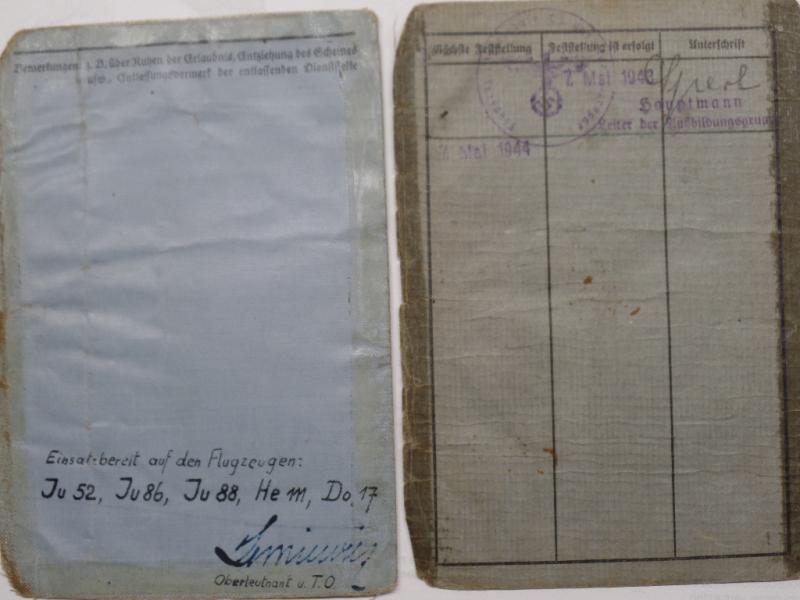 Bemerkungen z. B. über Ruhen der Erlaubnis, Entziehung des Scheines
usw., Entlassungsvermerk der entlassenden Dienststelle
Einsatzbereit auf den Flugzeugen:
Ju 52, Ju 86, Ju 88, He 111, Do. 17
Oberleutnant u. T.O.
Nächste Feststellung
Feststellung ist erfolgt
Unterschrift
7. Mai 1943
Hauptmann
Leiter der Ausbildungsgrupp
7. Mai 1944